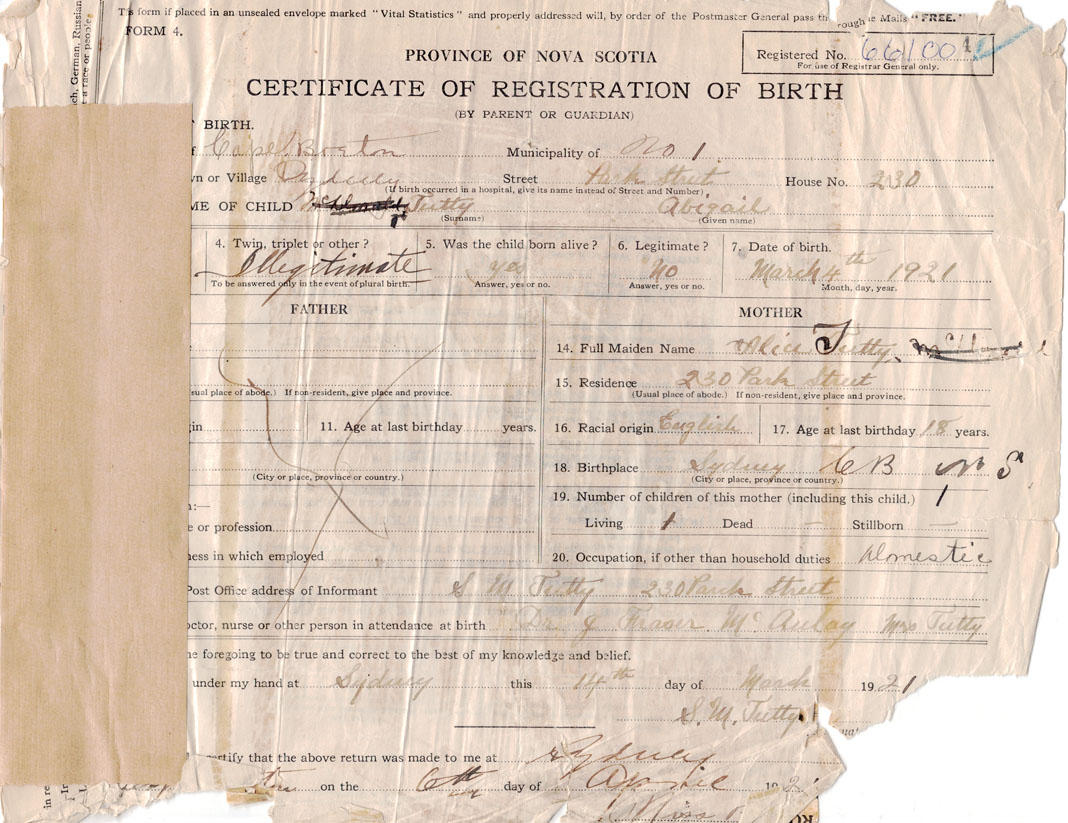 This form if placed in an unsealed envelope marked "Vital Statistics" and properly addressed will, by order of the Postmaster General pass through the Mails "FREE."
FORM 4.
PROVINCE OF NOVA SCOTIA
Registered No. 66100
For use of Registrar General only.
CERTIFICATE OF REGISTRATION OF BIRTH
(BY PARENT OR GUARDIAN)
BIRTH.
Cape Breton Municipality of No 1
or Village Sydney Street Park Street House No. 230
(If birth occurred in a hospital, give its name instead of Street and Number)
ME OF CHILD Tutty Abigail
(Surname) (Given name)
4. Twin, triplet or other? 5. Was the child born alive? 6. Legitimate? 7. Date of birth.
Illegitimate yes No March 4th 1921
To be answered only in the event of plural birth. Answer, yes or no. Answer, yes or no. Month, day, year.
FATHER MOTHER
14. Full Maiden Name Alice Tutty
15. Residence 230 Park Street
usual place of abode.) If non-resident, give place and province. (Usual place of abode.) If non-resident, give place and province.
gin 11. Age at last birthday years. 16. Racial origin English 17. Age at last birthday 18 years.
18. Birthplace Sydney C B N S
(City or place, province or country.) (City or place, province or country.)
19. Number of children of this mother (including this child.) 1
n:—
e or profession Living 1 Dead — Stillborn —
ness in which employed 20. Occupation, if other than household duties Domestic
Post Office address of Informant S M Tutty 230 Park Street
octor, nurse or other person in attendance at birth Dr J Fraser McAulay Mrs Tutty
e foregoing to be true and correct to the best of my knowledge and belief.
under my hand at Sydney this 14th day of March 1921
S. M. Tutty
ertify that the above return was made to me at Sydney
on the 6th day of April 192
Miss